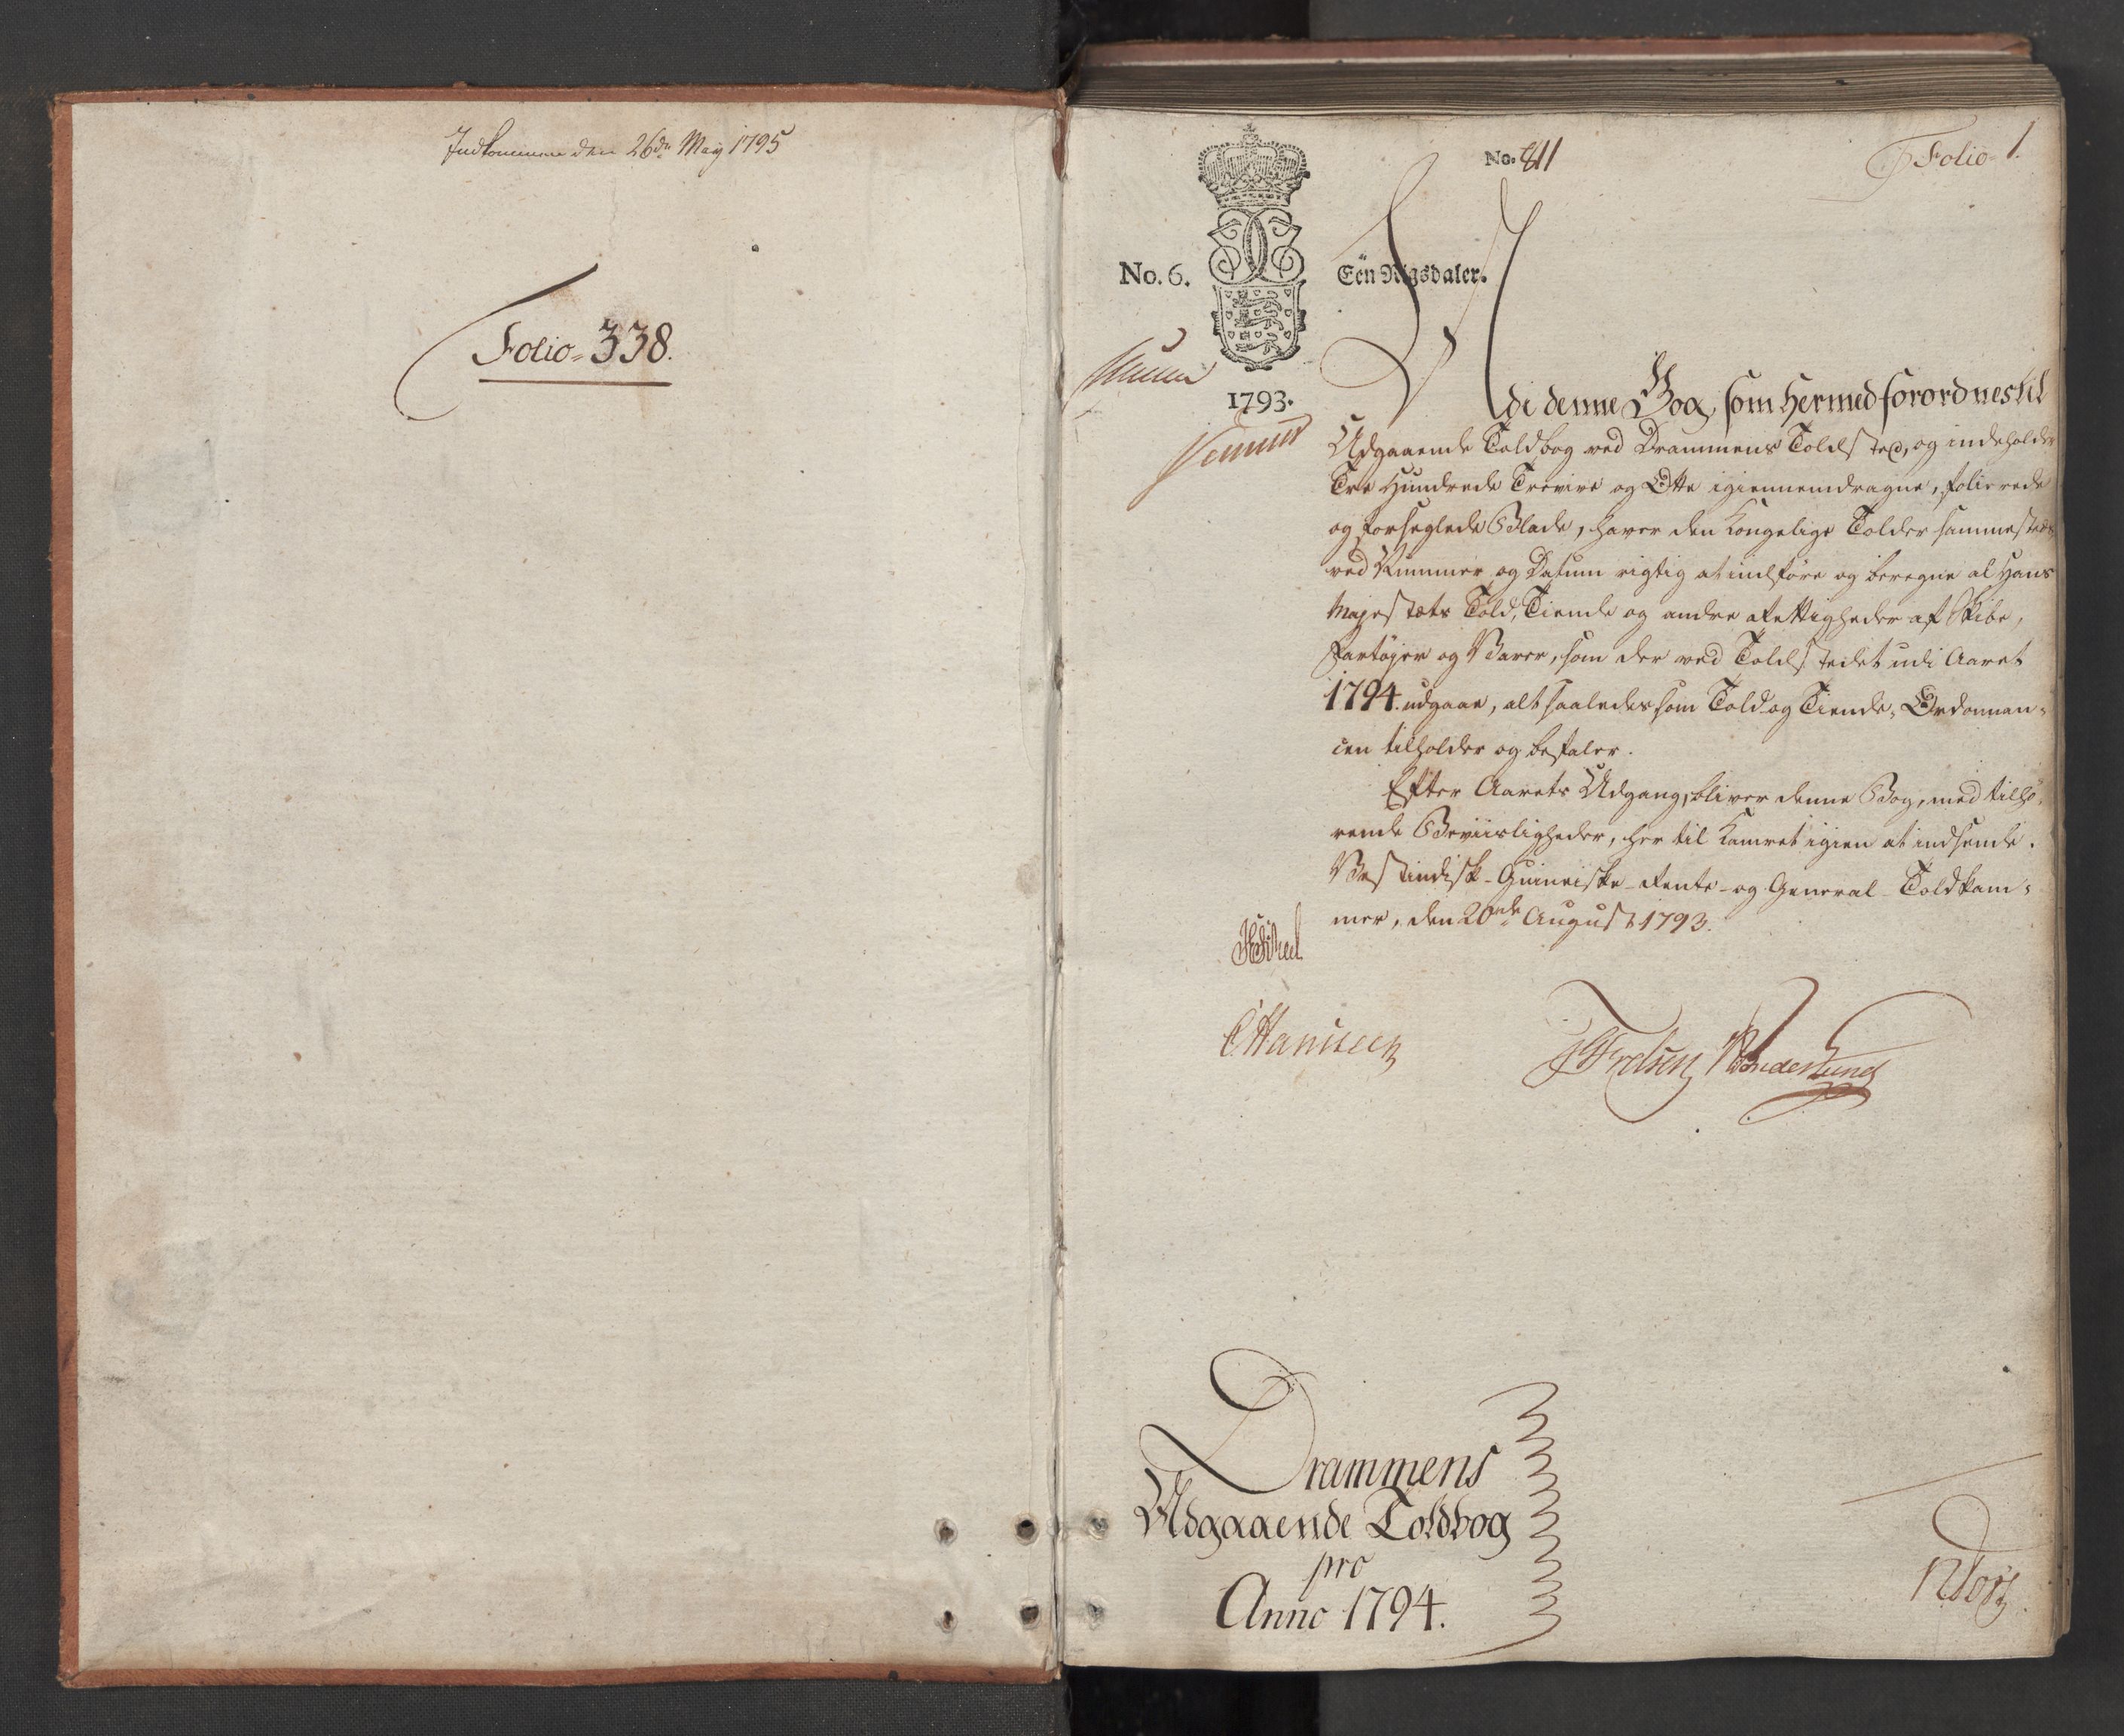 Indkommen den 26de May 1795
Folio 338.
No. 811
Folio 1.
No. 6.
Een Rigsdaler.
1793.
Udi denne Bog, som hermed forordnes til
Udgaaende Toldbog ved Drammens Toldsted, og indeholder
Tre Hundrede Tredive og Otte igiennemdragne, folierede
og forseglede Blade, haver den Kongelige Tolder sammesteds
ved Nummer og Datum rigtig at indføre og beregne al Hans
Majestæts Told, Tiende og andre Rettigheder af Skibe,
Fartøjer og Varer, som der ved Toldstedet udi Aaret
1794. udgaae, alt saaledes som Told og Tiende-Ordonnan-
cen tilholder og befaler.
Efter Aarets Udgang, bliver denne Bog, med tilhø-
rende Beviisligheder, her til Kamret igien at indsende.
Vestindisk-Guineiske-Rente-og General-Toldkam-
mer, den 20de August 1793.
Drammens
Udgaaende Toldbog
pro
Anno 1794.